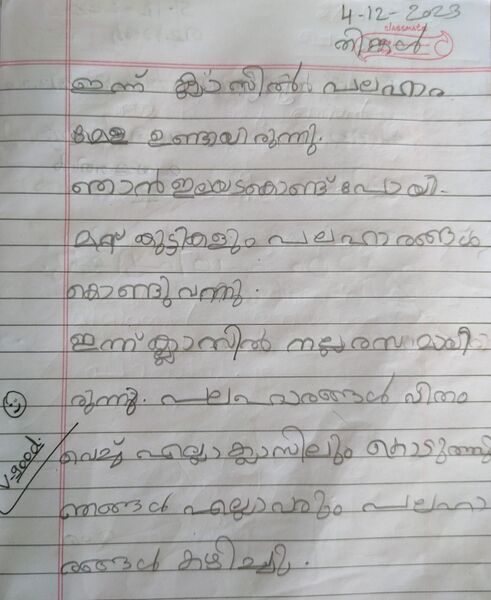 4-12-2023
classmate
തിങ്കൾ
ഇന്ന് ക്ലാസിൽ പലഹാര
മേള ഉണ്ടായിരുന്നു.
ഞാൻ ഇലയടകൊണ്ട് പോയി.
മറ്റ് കുട്ടികളും പലഹാരങ്ങൾ
കൊണ്ടുവന്നു.
ഇന്ന് ക്ലാസിൽ നല്ലരസമായി
രുന്നു. പലഹാരങ്ങൾ വീതം
വെച്ച് എല്ലാക്ലാസിലും കൊടുത്തു
ഞങ്ങൾ എല്ലാവരും പലഹാ
രങ്ങൾ കഴിച്ചു.
V.good.